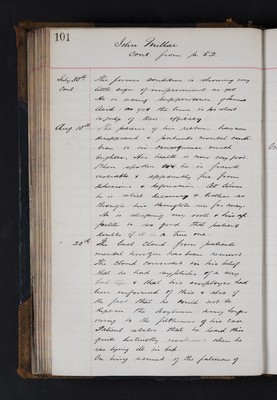 101
John Millar
Cont. from p. 52.
July 30th The former condition is showing very
Cont. little sign of improvement as yet
He is using suppositories
acid. as yet the time is too short
to judge of their efficacy
Aug. 10th The poison of his rectum has
disappeared & patient's mental condi-
tion is in consequence much
brighter. His health is now very good.
When spoken to he is found
rational & apparently free from
delusions & depression. At times
he is still dreamy & looks as
though his thoughts are far away.
He is sleeping very well & his ap-
petite is so good that patient
doubts if it is a true one.
" 20th The last cloud from patient's
mental horizon has been removed
The cloud consisted in his belief
that he had syphilis of a very
bad type & that his employer had
been informed of this & also of
the fact that he could not be
kept in the Asylum any longer
owing to the filthiness of his case
Patient states that he heard this
quite distinctly when he
was lying ill in bed.
On being assured of the falseness of